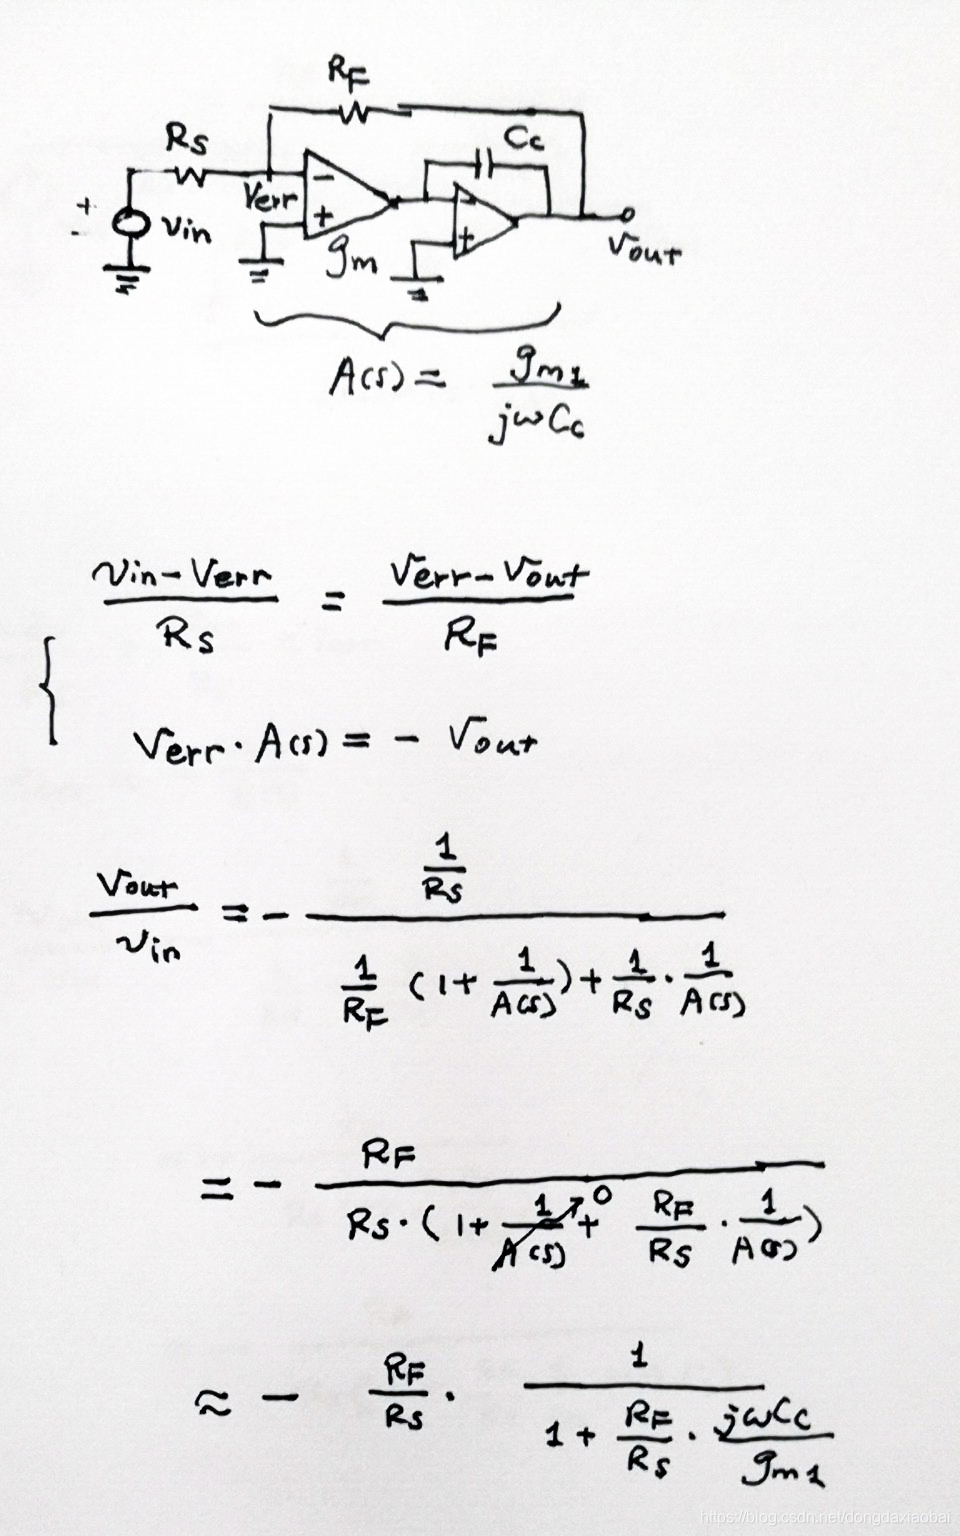 RF
Rs
Cc
+
-
vin
Verr
-
+
gm
-
+
Vout
A(s) = gm1 / jωCc
(vin - Verr) / Rs = (Verr - Vout) / RF
Verr · A(s) = - Vout
Vout / vin = - (1/Rs) / (1/RF (1 + 1/A(s)) + 1/Rs · 1/A(s))
= - RF / (Rs · (1 + 1/A(s) ↗0 + RF/Rs · 1/A(s)))
≈ - RF/Rs · 1 / (1 + RF/Rs · jωCc/gm1)
https://blog.csdn.net/dongdaxiaobai